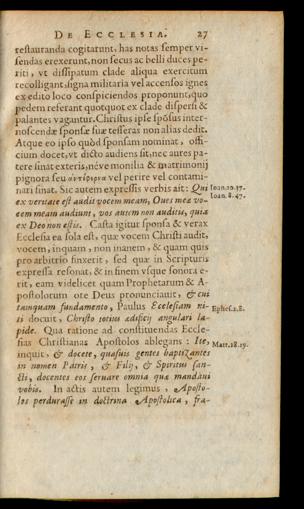 DE ECCLESIA. 27
restauranda cogitarunt, has notas semper vi-
sendas erexerunt, non secus ac belli duces pe-
riti, vt dissipatum clade aliqua exercitum
recolligant, signa militaria vel accensos ignes
ex edito loco conspiciendos proponunt, quo
pedem referant quotquot ex clade dispersi &
palantes vagantur. Christus ipse spōsus inter-
noscendæ sponsæ suæ tesseras non alias dedit.
Atque eo ipso quòd sponsam nominat, offi-
cium docet, vt dicto audiens sit, nec autes pa-
tere sinat exteris, néve monilia & matrimonij
pignora seu ἀντίφερνα vel perire vel contami-
nari sinat. Sic autem expressis verbis ait: Qui
ex veritate est audit vocem meam, Oues meæ vo-
cem meam audiunt, vos autem non auditis, quia
ex Deo non estis. Casta igitur sponsa & verax
Ecclesia ea sola est, quæ vocem Christi audit,
vocem, inquam, non inanem, & quam quis
pro arbitrio finxerit, sed quæ in Scripturis
expressa resonat, & in finem vsque sonora e-
rit, eam videlicet quam Prophetarum & A-
postolorum ore Deus pronunciauit, & cui
tamquam fundamento, Paulus Ecclesiam ni-
ti docuit, Christo totius ædificij angulari la-
pide. Qua ratione ad constituendas Eccle-
sias Christianas Apostolos ablegans: Ite,
inquit, & docete, quasuis gentes baptizantes
in nomen Patris, & Filij, & Spiritus san-
cti, docentes eos seruare omnia quæ mandaui
vobis. In actis autem legimus, Aposto-
los perdurasse in doctrina Apostolica, fra-
Ioan.10.27.
Ioan.8.47.
Ephes.2.8.
Matt.28.19.